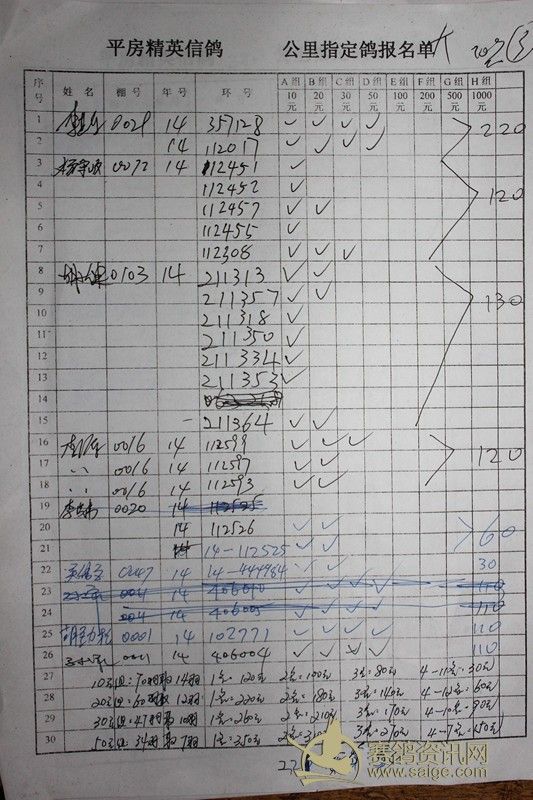 平房精英信鸽 公里指定鸽报名单
序号 姓名 棚号 年号 环号 A组10元 B组20元 C组30元 D组50元 E组100元 F组200元 G组500元 H组1000元
1 0021 14 357128 ✓ ✓ ✓ ✓ 220
2 14 112017 ✓ ✓ ✓ ✓
3 0072 14 112451 ✓
4 112452 ✓ 120
5 112457 ✓ ✓
6 112455 ✓
7 112308 ✓ ✓ ✓
8 0103 14 211313 ✓ ✓
9 211357 ✓ ✓ 130
10 211318 ✓
11 211350 ✓
12 211334 ✓
13 211353 ✓
14
15 211364 ✓ ✓
16 0016 14 112599 ✓ ✓ ✓
17 〃 0016 14 112597 ✓ ✓ 120
18 〃 0016 14 112593 ✓ ✓
19 0020 14 112525
20 14 112526 ✓ ✓ 60
21 14-112525 ✓ ✓
22 0047 14 14-444984 ✓ ✓ 30
23 0041 14 406010 ✓ ✓ ✓ ✓ 110
24 0041 14 406005 ✓ ✓ ✓ ✓ 110
25 0001 14 102771 ✓ ✓ ✓ ✓ 110
26 14 406004 ✓ ✓ ✓ ✓ 110
27 10元组:70羽取14羽 1名:120元 2名:100元 3名:80元 4-14名:30元
28 20元组:60羽取12羽 1名:220元 2名:180元 3名:140元 4-12名:60元
29 30元组:47羽取10羽 1名:260元 2名:210元 3名:170元 4-10名:90元
30 50元组:34羽取7羽 1名:350元 3名:270元 4-7名:150元
赛鸽资讯网
www.saige.com